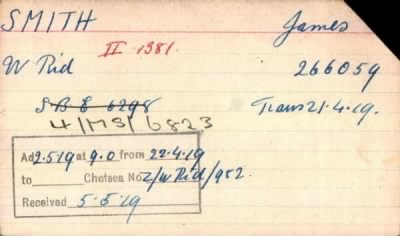 SMITH James
II 1381.
W Rid 266059
S B E 6298 Trans 21.4.19.
4/MS/6823
Ad 2.5.19 at 9.0 from 22.4.19
to Chelsea No 2/W Rid/952.
Received 5.5.19